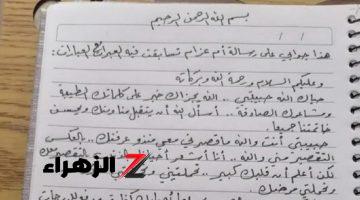 بسم الله الرحمن الرحيم
هذا جوابي على رسالة أم عزام تسابقت فيه العبرات العبارات :
وعليكم السلام ورحمة الله وبركاته
حياك الله حبيبتي .. الله يجزاك خير على كلماتك الطيبة
ومشاعرك الصادقة .. أسأل الله أن يتقبل منا ومنك ويحسن
خاتمتنا جميعا .
حبيبتي أنتِ والله ماقصرتي معي منذ عرفتك .. بالعكس
التقصير مني والله .. أنا أشعر
لكن أعلم أن قلبك كبير .. تحملتيني
وتحملتي مرضك .
الزهراء